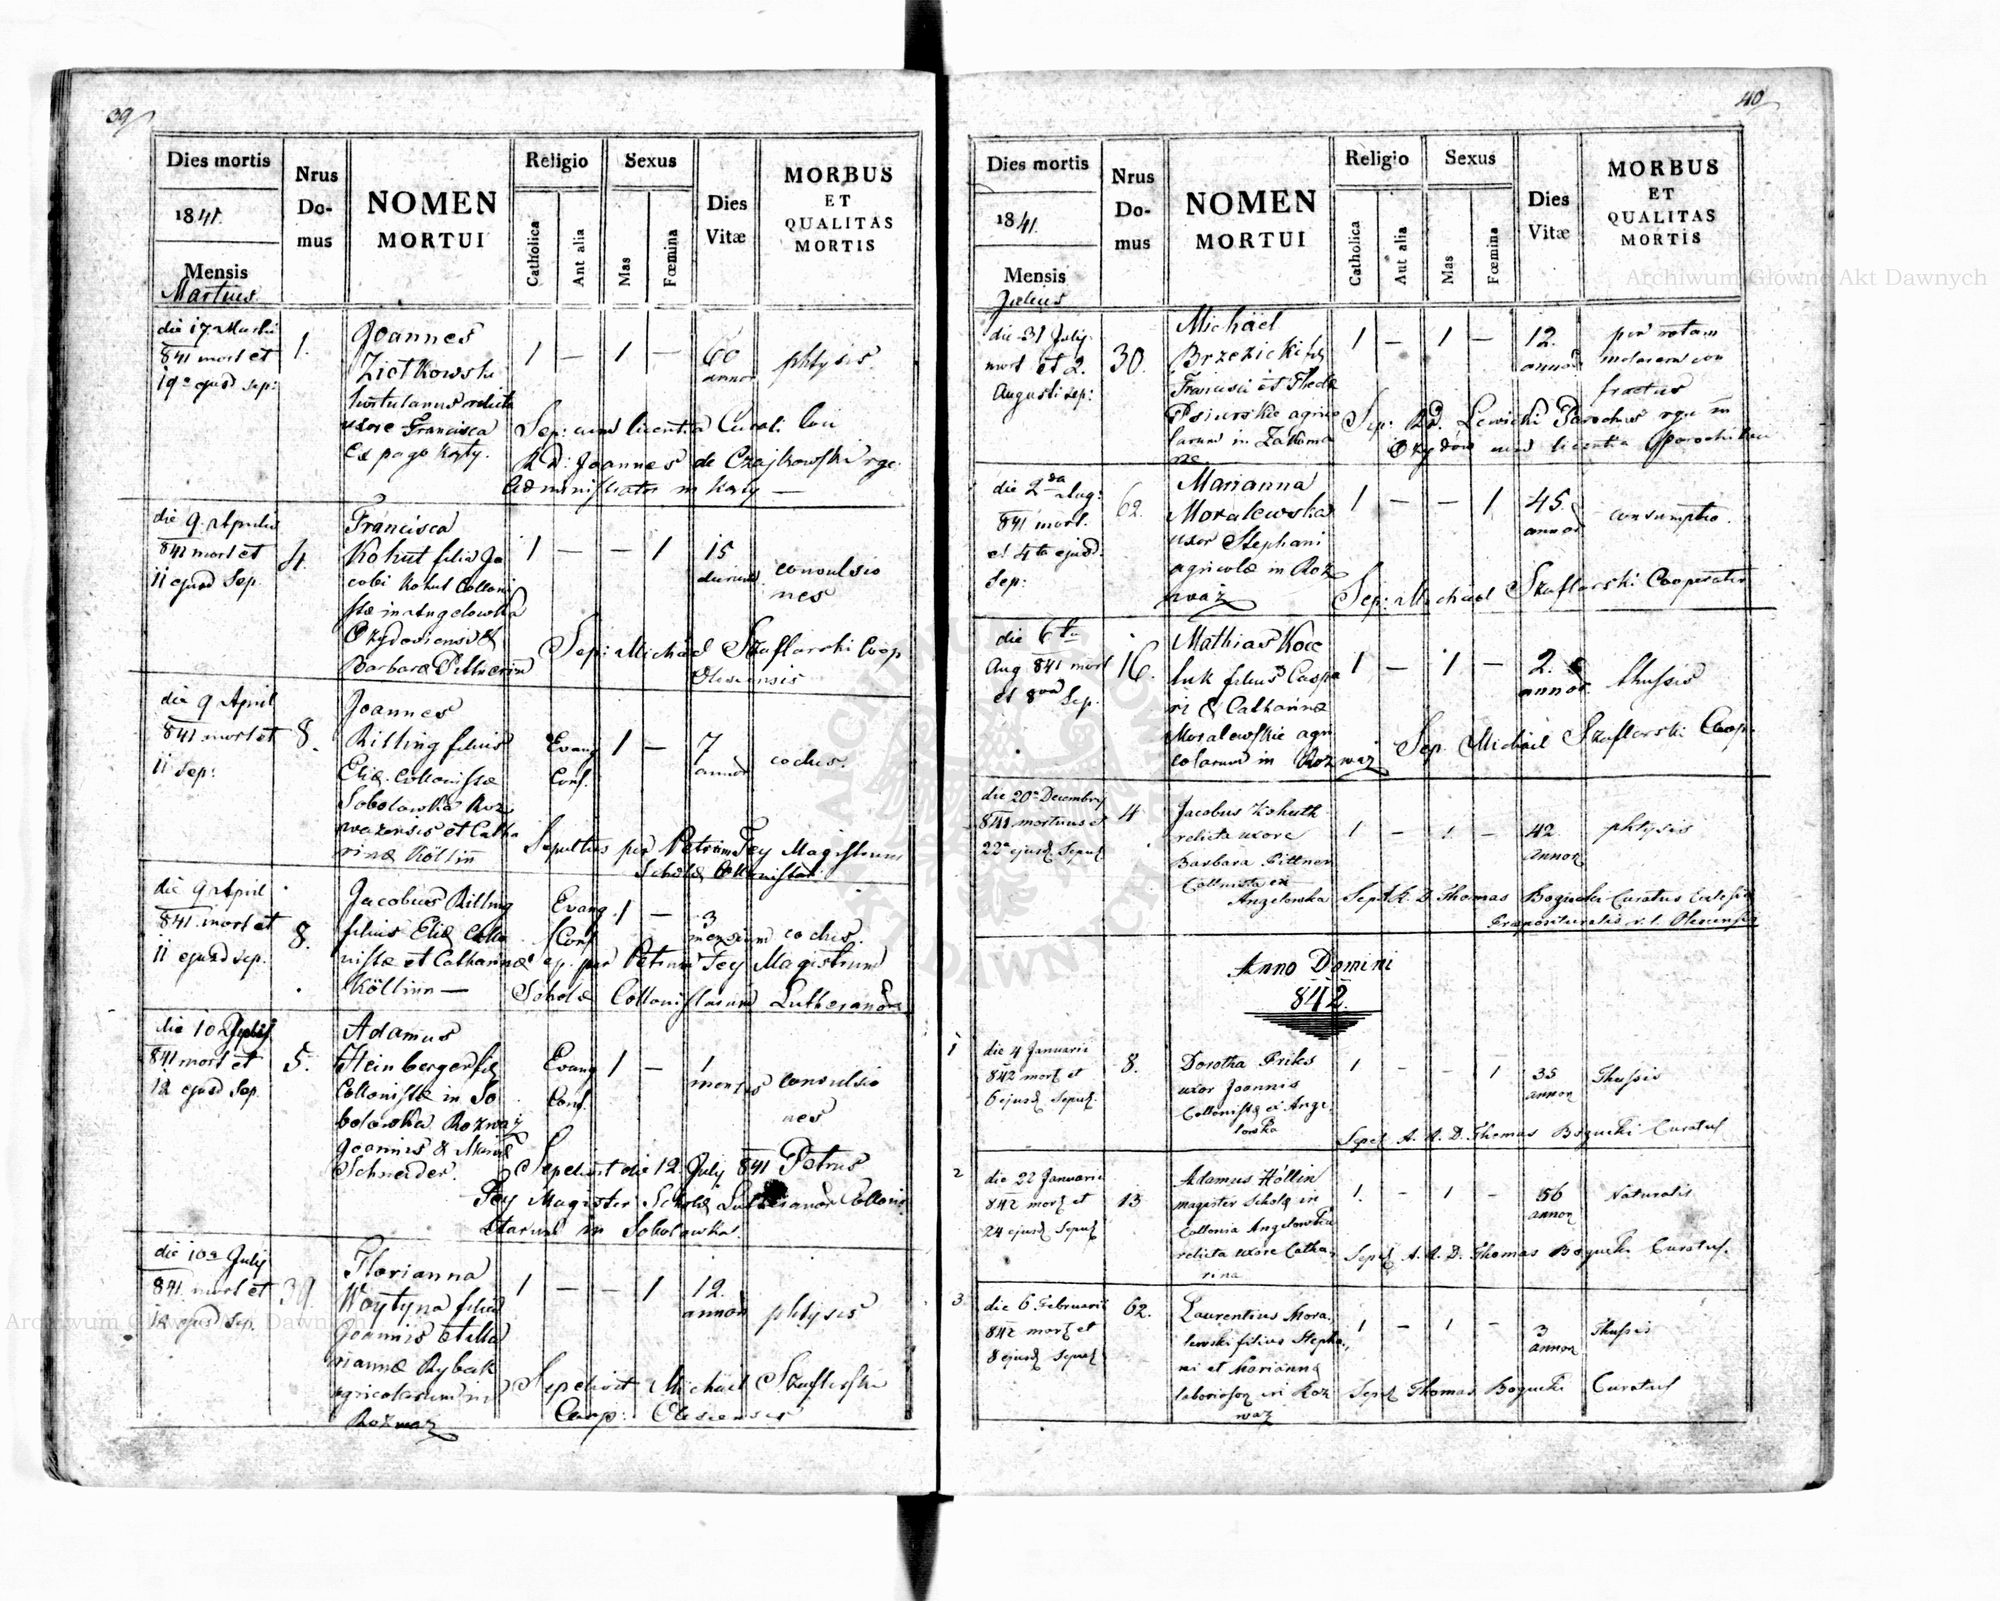 39
Dies mortis
1841.
Mensis
Martius
Nrus
Do-
mus
NOMEN
MORTUI
Religio
Catholica
Aut alia
Sexus
Mas
Fœmina
Dies
Vitæ
MORBUS
ET
QUALITAS
MORTIS
die 17 Martii
841 mort et
19ª ejusd Sep:
1.
Joannes
Zietkowski
hortulanus relicta
uxore Francisca
Ex pago
1 — 1 —
60
annor
phtysis.
Sep: cum licentia Curati loci
R.D: Joannes de Czajkowski rgc
Administrator in
die 9. Aprilis
841 mort et
11 ejusd Sep.
4.
Francisca
Kohut filia Ja
cobi Kohut Colloni
stæ in Angelowka
Ozydoviensi &
Barbaræ Pittnerin
1 — — 1
15
dierum
convulsio
nes
Sep: Michael Szaflarski Coop
Olesiensis
die 9 April
841 mort et
11 Sep:
8.
Joannes
Rilling filius
Eliæ Collonistæ
Sobolowka Roz
wazensis et Catha
rinæ Köllin
Evang
Conf.
1 —
7
annor
coclus.
Sepultus per Petrum Fey Magistrum
Scholæ Collonistar:
die 9 April
841. mort et
11 ejusd Sep.
8.
Jacobus Rilling
filius Eliæ Collo
nistæ et Catharinæ
Köllinn —
Evang
Conf
1 —
3
mensium
coclus.
Sep. per Petrum Fey Magistrum
Scholæ Collonistarum Lutheranor
die 10 July
841 mort et
12 ejusd Sep.
5.
Adamus
Heinberger fil
Collonistæ in So
bolowka Rozwaz
Joannis & Mariæ
Schneider.
Evang
Conf.
1 —
1
mensis
convulsio
nes
Sepelivit die 12 July 841 Petrus
Fey Magister Scholæ Lutheranor Colloni
starum in Sobolowka.
die 10a July
841. mort et
12 ejusd Sep.
39.
Florianna
Woytyna filia
Joannis et Ma
riannæ Rybak
agricolarum in
Rozwaz
1 — — 1
12.
annor
phtysis
Sepelivit Michael Szaflarski
Coop: Olesiensis
40
Dies mortis
1841.
Mensis
Julius
Nrus
Do-
mus
NOMEN
MORTUI
Religio
Catholica
Aut alia
Sexus
Mas
Fœmina
Dies
Vitæ
MORBUS
ET
QUALITAS
MORTIS
die 31 July
mort et 2.
Augusti Sep:
30.
Michael
Brzezicki fil
Francisci et Theclæ
Psiurskie agrico
larum in Zakoma
rze.
1 — 1 —
12.
annor
per rotam
molarem con
fractus
Sep: R.D. Lewicki Parochus rgu in
Ozydow cum licentia Parochi loci
die 2da Aug:
841 mort.
et 4ta ejusd.
Sep:
62.
Marianna
Moralewska
uxor Stephani
agricolæ in Roz
waz
1 — — 1
45.
annor
consumptio.
Sep: Michael Szaflarski Cooperator
die 6ta
Aug 841 mort
et 8va Sep.
16.
Mathias Koc
luk filius Caspa
ri & Catharinæ
Moralewskie agri
colarum in Rozwaz
1 — 1 —
2.
annor.
thussis
Sep. Michael Szaflarski Coop.
die 20ª Decembry
841 mortuus et
22ª ejusd Sepul
4
Jacobus Kohuth
relicta uxore
Barbara Pittner
Collonista ex
Angelowka
1 - 1 —
42
annor
phtysis
Sepel A. R. D. Thomas Bogucki Curatus Ecclesiæ
Præposituralis r. l. Olesiensis
Anno Domini
842.
1
die 4 Januarii
842 mort et
6 ejusd Sepul.
8.
Dorotha Friks
uxor Joannis
Collonistæ ex Ange
lowka
1 - - 1
35
annor
Thussis
Sepel A. R. D. Thomas Bogucki Curatus
2
die 22 Januarii
842 mort et
24 ejusd Sepul
13
Adamus Höllin
magister Scholæ in
Collonia Angelowka
relicta uxore Catha
rina
1. - 1 -
56
annor
Naturalis
Sepel A. R. D. Thomas Bogucki Curatus.
3
die 6 Februarii
842 mort et
8 ejusd Sepul
62.
Laurentius Mora
lewski filius Stepha
ni et Mariannæ
laboriosor in Roz
waz
1 - 1 -
3
annor
Thussis
Sepel Thomas Bogucki Curatus
Archiwum Główne Akt Dawnych
Archiwum Główne Akt Dawnych
ARCHIWUM GŁÓWNE AKT DAWNYCH